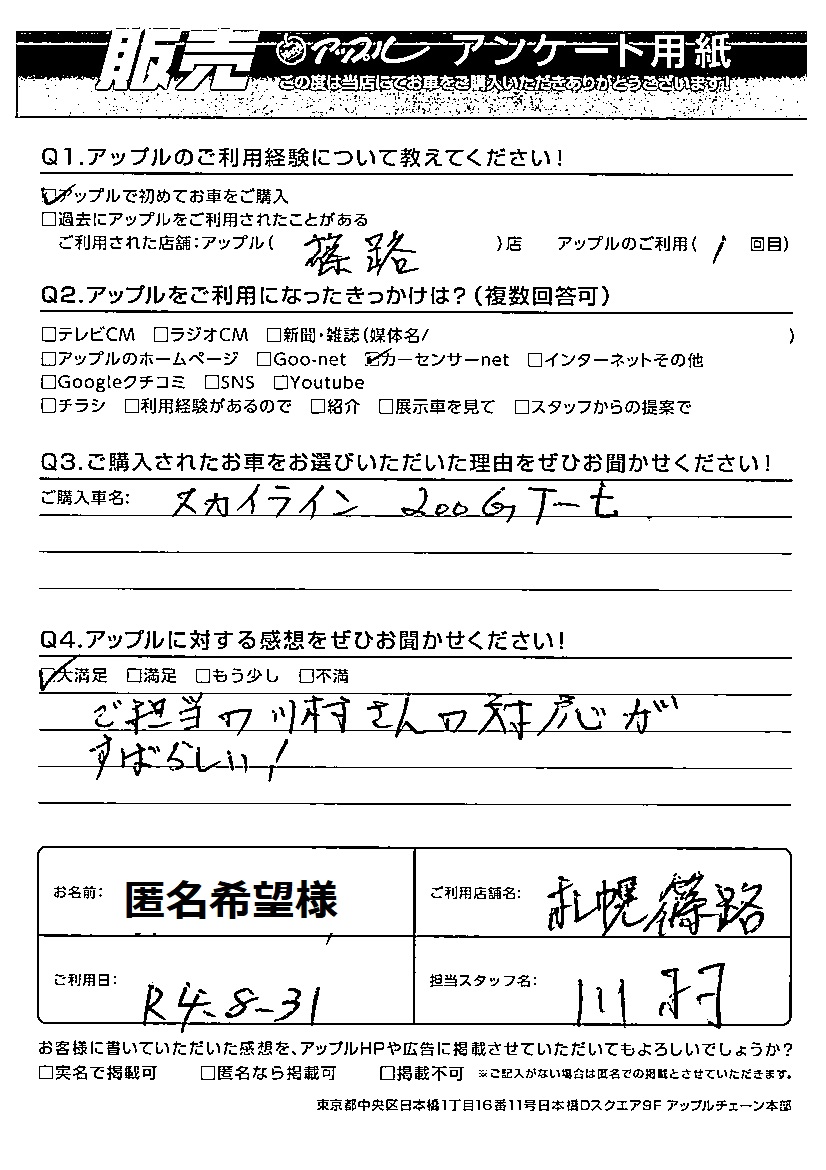 販売 アップル アンケート用紙
この度は当店にてお車をご購入いただきありがとうございます!
Q1.アップルのご利用経験について教えてください!
☑アップルで初めてお車をご購入
□過去にアップルをご利用されたことがある
ご利用された店舗:アップル( 篠路 )店 アップルのご利用( 1 回目)
Q2.アップルをご利用になったきっかけは?(複数回答可)
□テレビCM □ラジオCM □新聞・雑誌(媒体名/ )
□アップルのホームページ □Goo-net ☑カーセンサーnet □インターネットその他
□Googleクチコミ □SNS □Youtube
□チラシ □利用経験があるので □紹介 □展示車を見て □スタッフからの提案で
Q3.ご購入されたお車をお選びいただいた理由をぜひお聞かせください!
ご購入車名: スカイライン 200GT-t
Q4.アップルに対する感想をぜひお聞かせください!
☑大満足 □満足 □もう少し □不満
ご担当の川村さんの対応が
すばらしい!
お名前: 匿名希望様 ご利用店舗名: 札幌篠路
ご利用日: R4-8-31 担当スタッフ名: 川村
お客様に書いていただいた感想を、アップルHPや広告に掲載させていただいてもよろしいでしょうか?
□実名で掲載可 □匿名なら掲載可 □掲載不可 ※ご記入がない場合は匿名での掲載とさせていただきます。
東京都中央区日本橋1丁目16番11号日本橋Dスクエア9F アップルチェーン本部